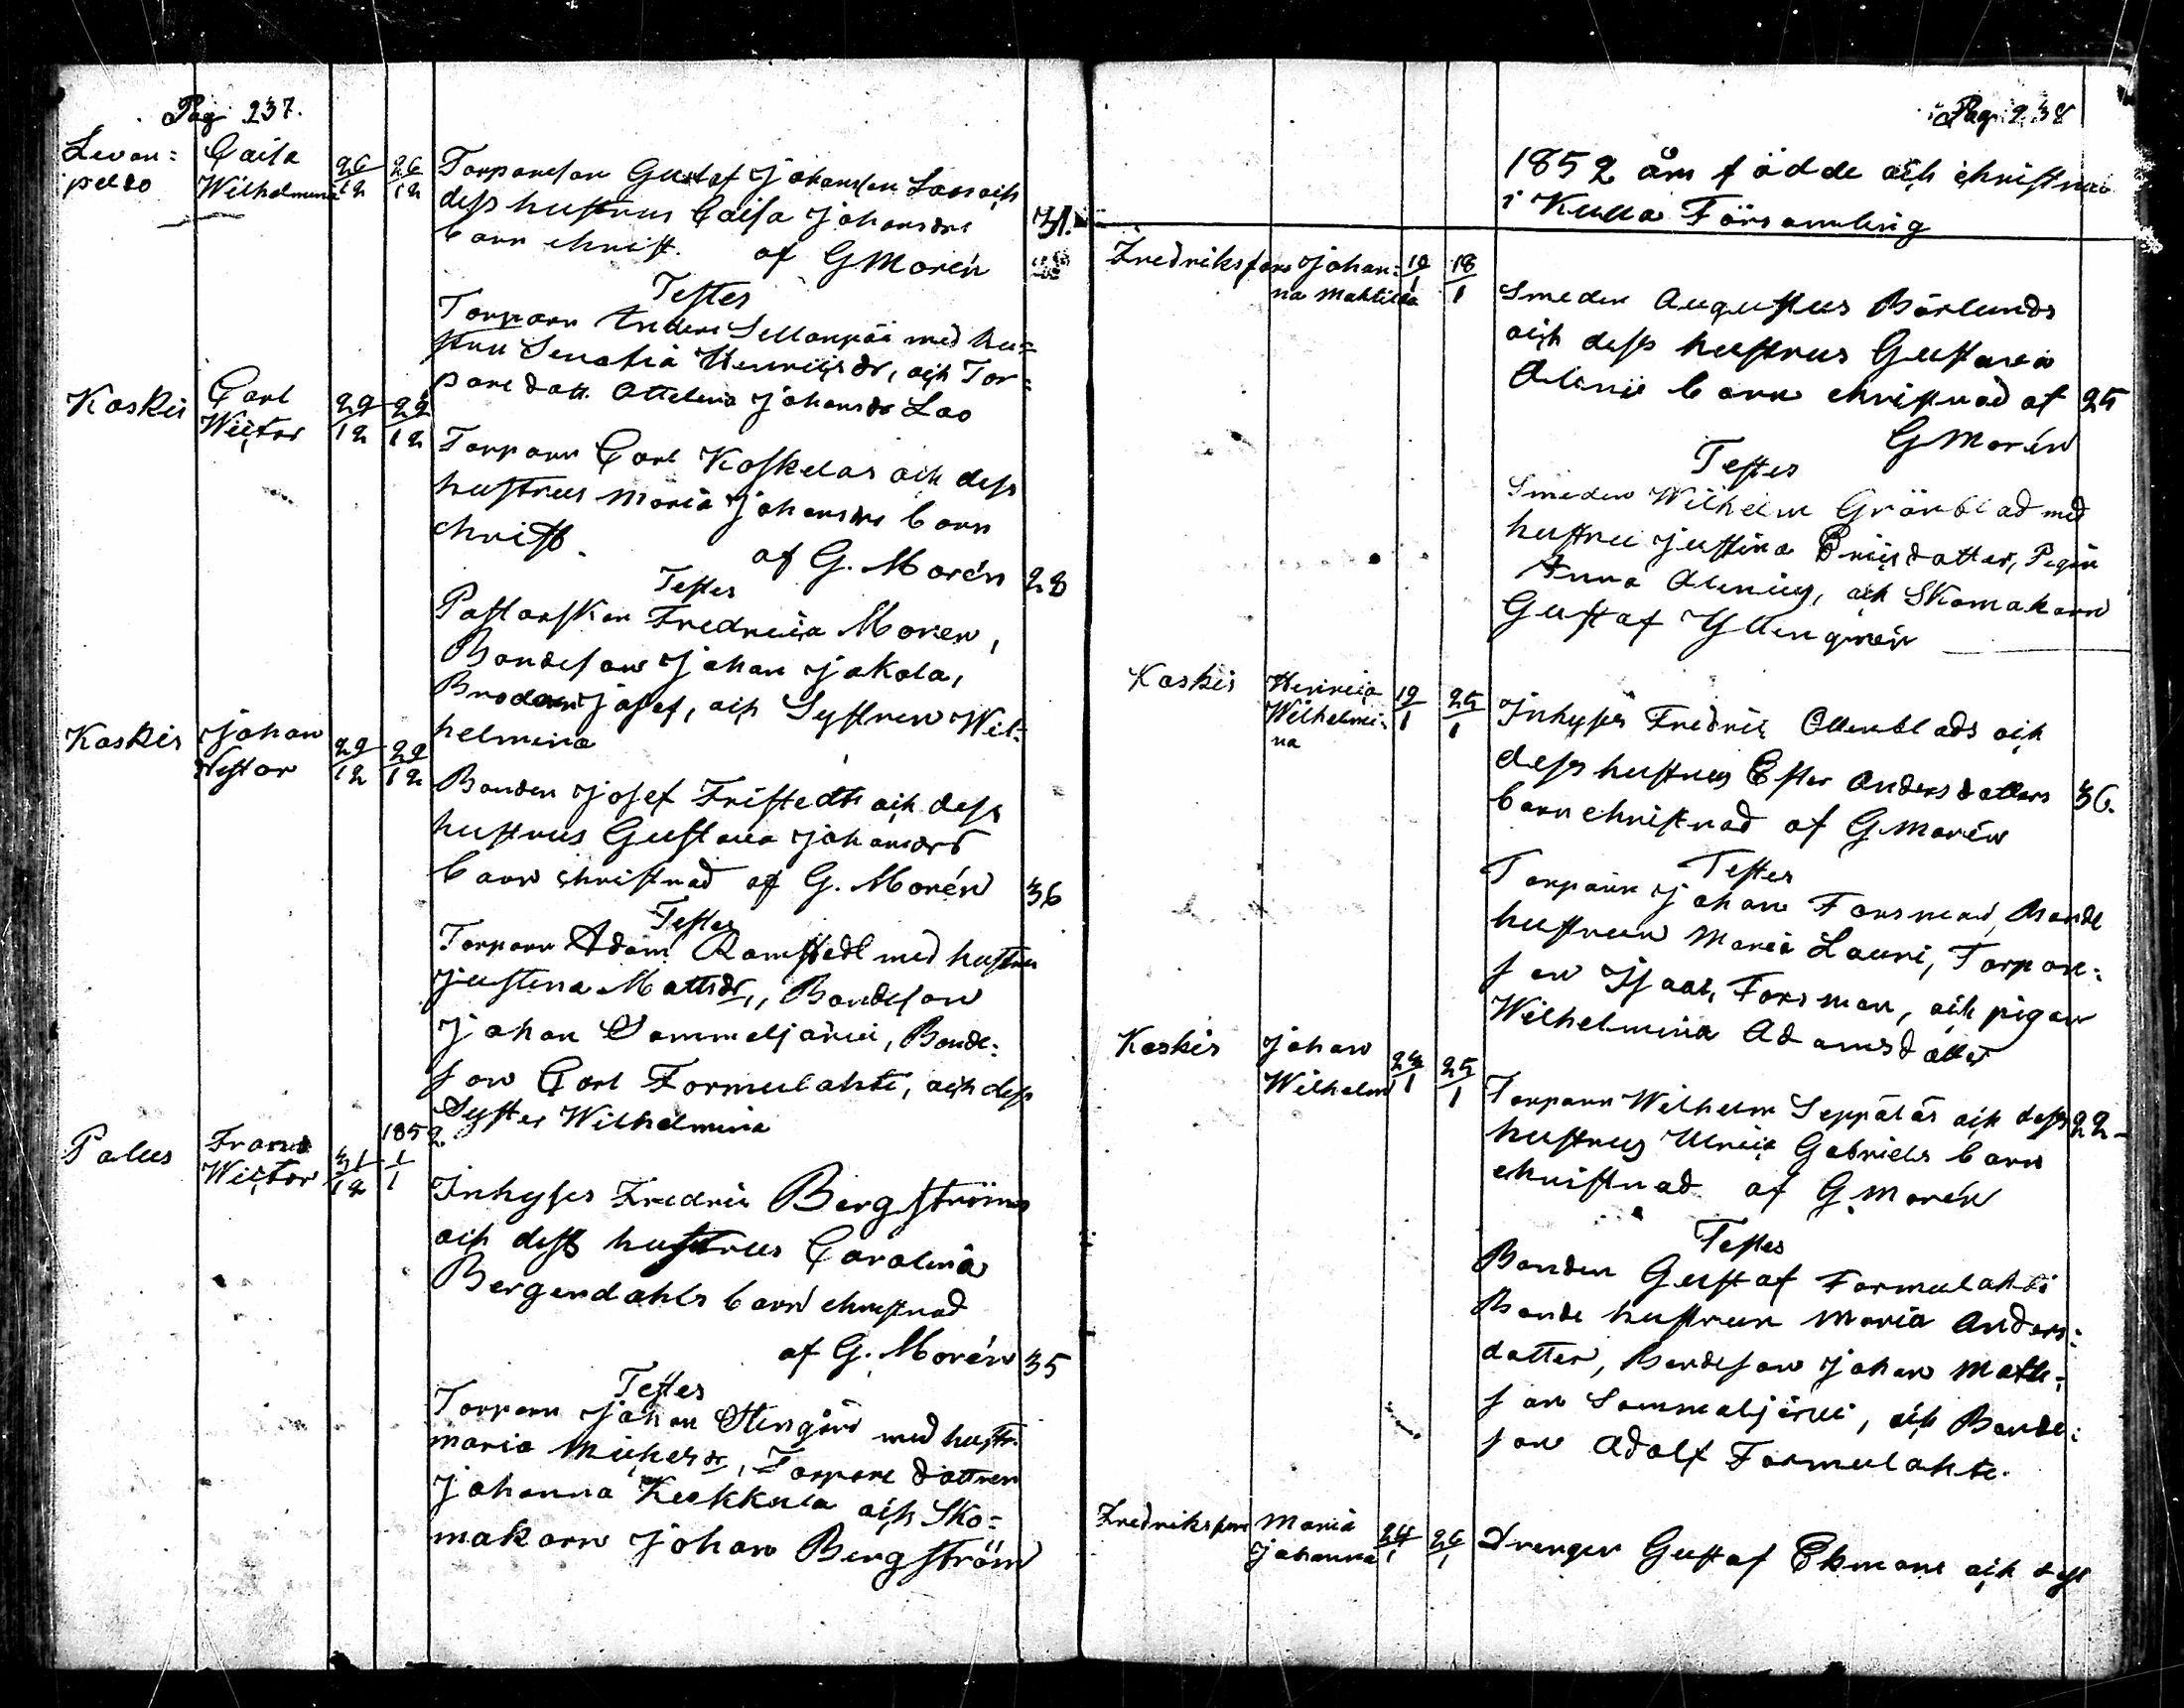 Pag 237.
Levon=
peldo
Caisa
Wilhelmina
26/12
26/12
Torpareson Gustaf Johansson Laos och
dess hustrus Caisa Johansdrs
barn christ. af G Morén
31.
Testes
Torparn Anders Sellanpää med hu=
stru Serafia Henricsdr, och Tor=
pare dott. Ottelina Johansdr Lao
Koskis
Carl
Wictor
29/12
29/12
Torparn Carl Koskelas och dess
hustrus Maria Johansdrs barn
christ.
af G. Morén
28
Testes
Pastorskan Fredrica Moren,
Bondeson Johan Jakola,
Brodern Josef, och Systren Wil=
helmina
Koskis
Johan
Nestor
29/12
29/12
Bonden Josef Fristedts och dess
hustrus Gustava Johansdrs
barn christnad af G. Morén
36
Testes
Torparn Adam Ramstedt med hustru
Justina Mattsdr, Bondeson
Johan Sammaljärvi, Bonde=
son Carl Formulahti, och dess
Syster Wilhelmina
Palus
Frans
Wictor
31/12
1852
1/1
Inhyses Fredric Bergströms
och dess hustrus Carolina
Bergendahls barn christnad
af G. Morén
35
Testes
Torparn Johan Stengård med hustr.
Maria Michelsdr, Torpare dottren
Johanna Kukkula och Sko=
makarn Johan Bergström
Pag 238
1852 års födde och christnade
i Kulla Församling
Fredriksfors
Johan=
na Mathilda
10/1
18/1
Smeden Augustus Bärlunds
och dess hustrus Gustava
Alenii barn christnad af
25
G Morén
Testes
Smeden Wilhelm Grönblad med
hustru Justina Ericsdotter, Pigan
Anna Alenius, och Skomakarn
Gustaf Yllengrén
Koskis
Henrica
Wilhelmi=
na
19/1
25/1
Inhyses Fredric Ollenblads och
dess hustrus Ester Andersdotters
36.
barn christnad af G Morén
Testes
Torparn Johan Forsman, Bonde
hustrun Maria Lauri, Torpare=
son Isaac Forsman, och pigan
Wilhelmina Adamsdotter
Koskis
Johan
Wilhelm
23/1
25/1
Torparn Wilhelm Seppäläs och dess
22
hustrus Ulrica Gabriels barn
christnad af G Morén
Testes
Bonden Gustaf Formulahti
Bonde hustrun Maria Anders=
dotter, Bondeson Johan Matts=
son Sammaljärvi, och Bonde=
son Adolf Formulahti.
Fredriksfors
Maria
Johanna
24/1
26/1
Drengen Gustaf Ekmans och dess